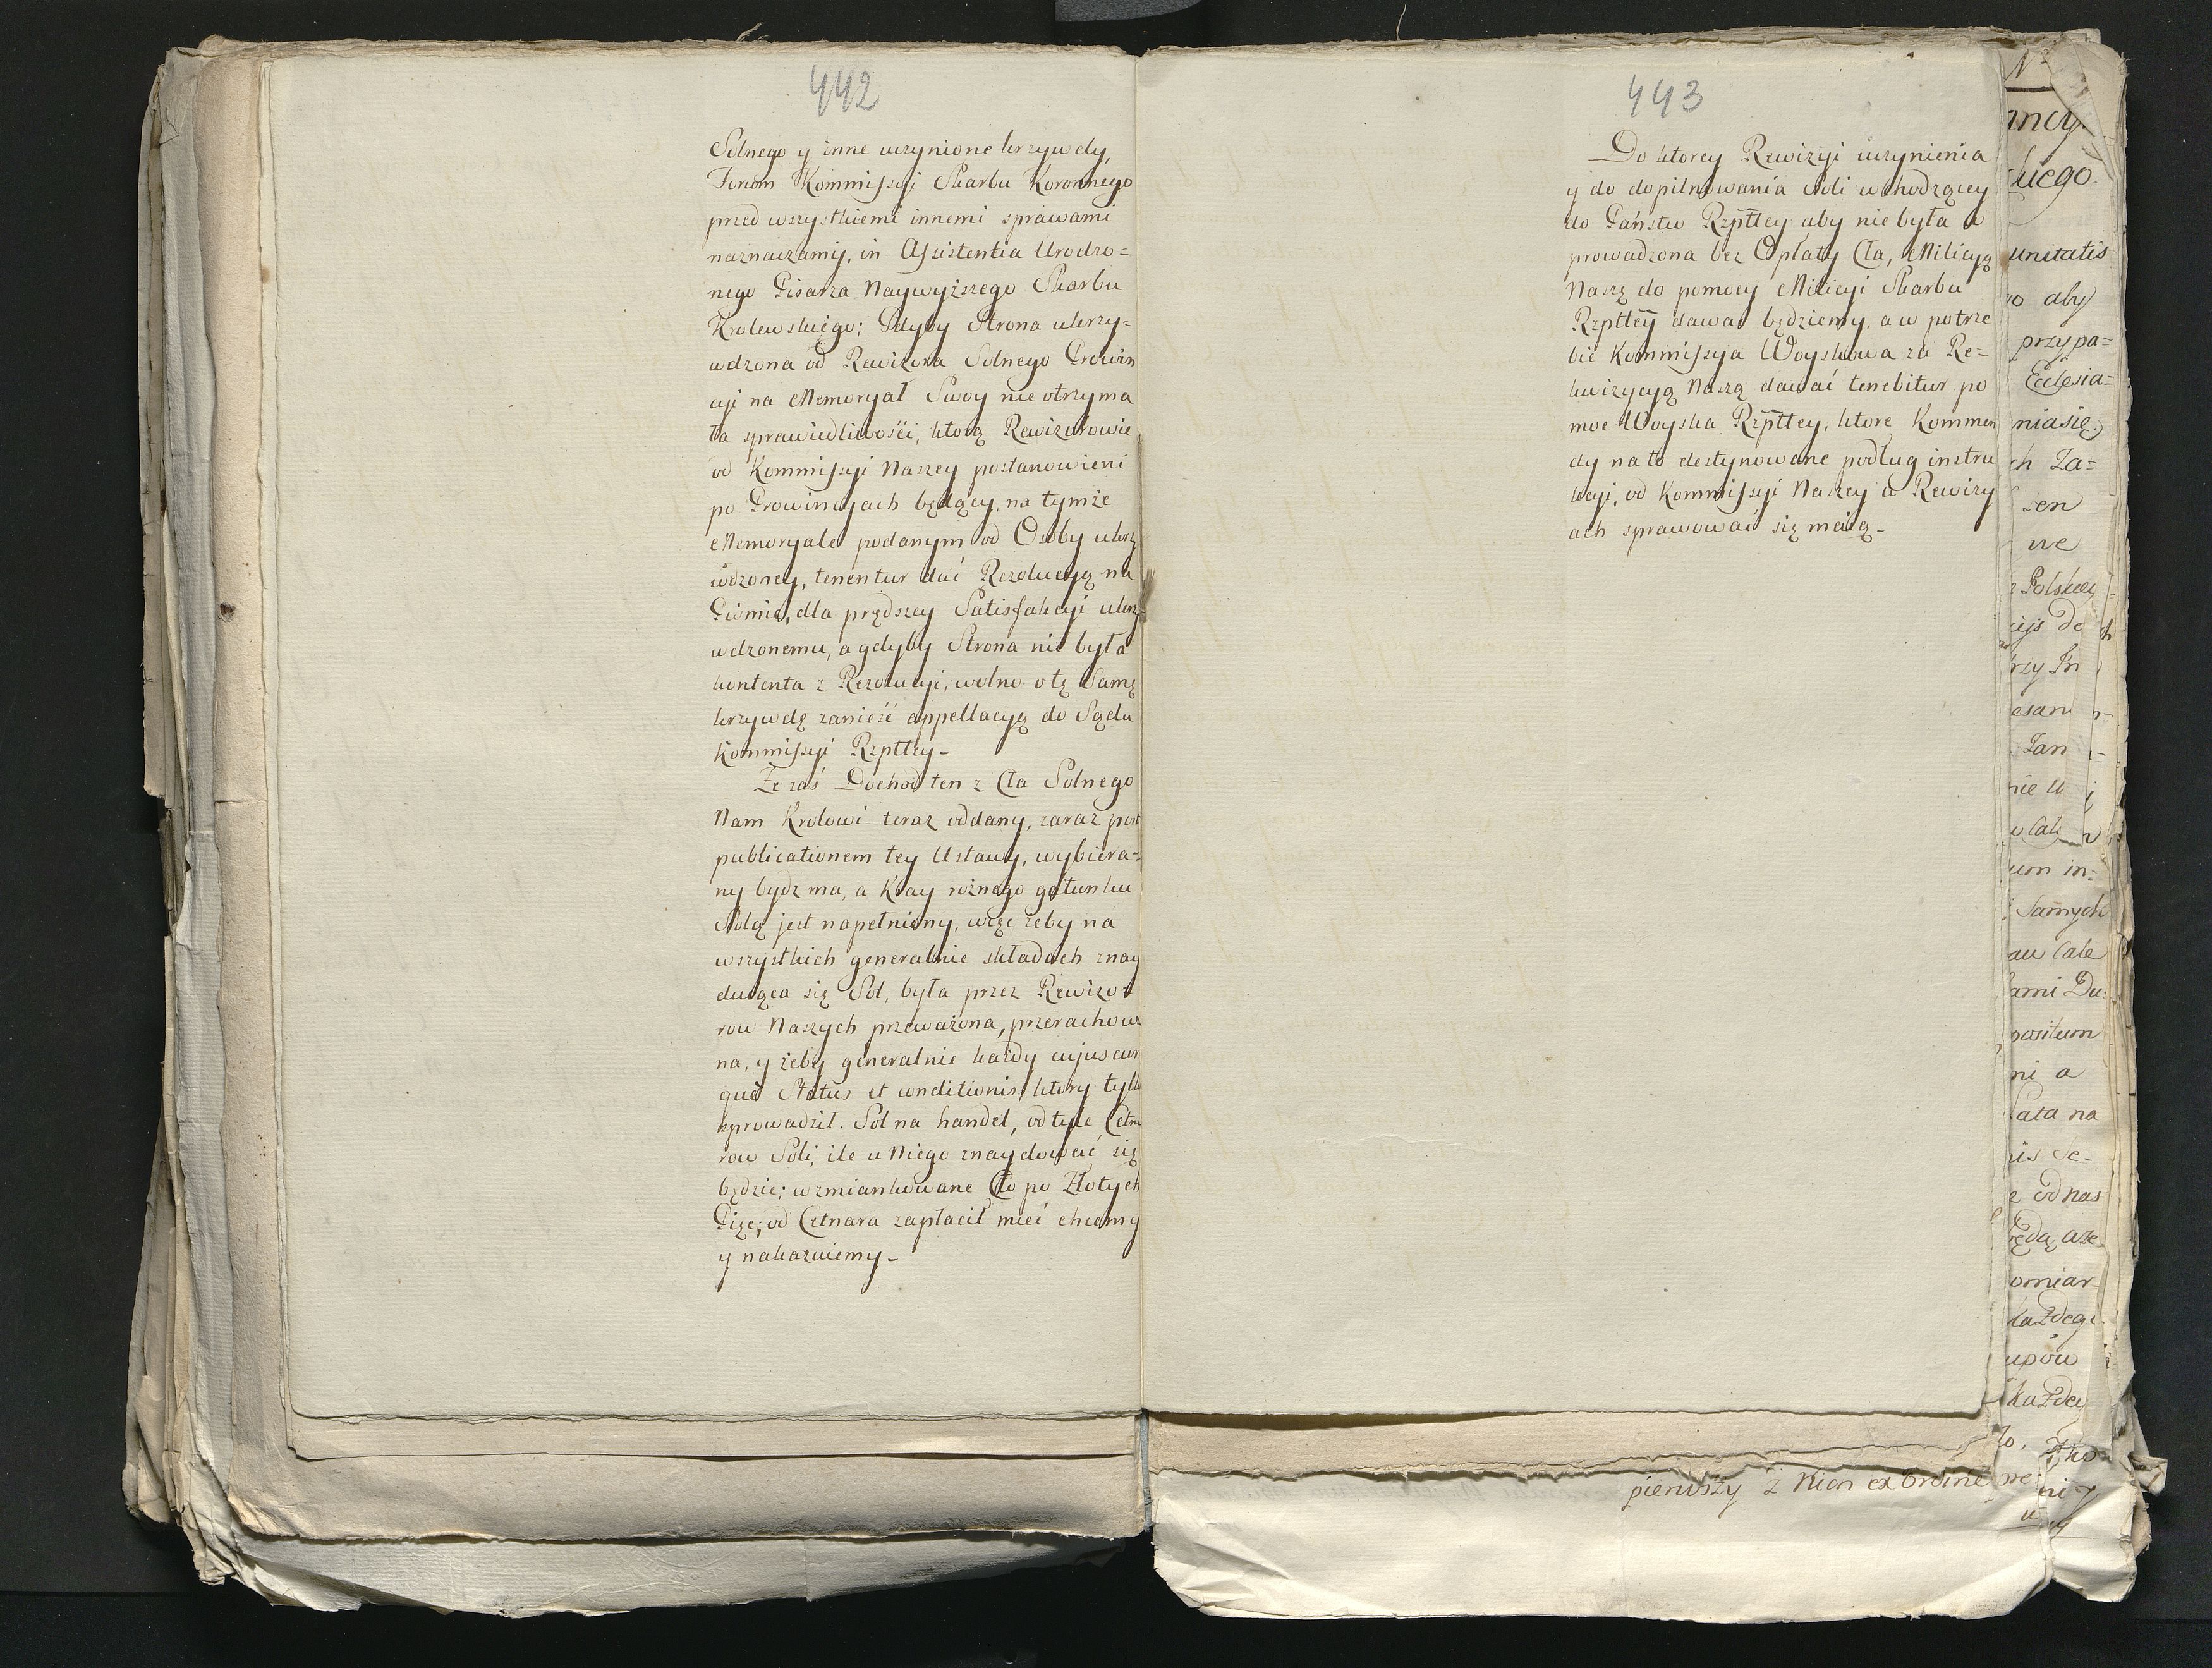 442
Solnego y inne uczynione krzywdy,
Forum Kommissyi Skarbu Koronnego
przed wszystkiemi innemi sprawami
naznaczamy, in Assistentia Urodzo=
nego Pisarza Naywyższego Skarbu
Krolewskiego; Gdyby Strona ukrzy=
wdzona od Rewizora Solnego Prowin
cyi na Memoryał Swoy nie otrzyma
ła sprawiedliwości, ktorą Rewizorowie
od Kommissyi Naszey postanowieni
po Prowincyach będący, na tymże
Memoryale podanym od Osoby ukrzy
wdzoney, tenentur dać Rezolucyą na
Piśmie, dla prędszey Satisfakcyi ukrzy=
wdzonemu, a gdyby Strona nie była
kontenta z Rezolucyi, wolno o tę Samę
krzywdę zanieść appellacyą do Sądu
Kommissyi Rzpttey_
Że zaś Dochod ten z Cła Solnego
Nam Krolowi teraz oddany, zaraz post
publicationem tey Ustawy, wybiera=
ny bydz ma, a Kray rożnego gatunku
Solą jest napełniony, więc żeby na
wszystkich generalnie składach znay
duiąca się Sol, była przez Rewizo=
row Naszych przeważona, przerachowa
na, y żeby generalnie każdy cujuscun
que Status et conditionis, ktory tylko
sprowadził Sol na handel, od tyle Cetna
row Soli, ile u Niego znaydować się
będzie; wzmiankowane Cło po Złotych
Pięc; od Cetnara zapłacił mieć chcemy
y nakazuiemy_
443
Do ktorey Rewizyi uczynienia
y do dopilnowania Soli wchodzącey
do Państw Rzpttey aby nie była w
prowadzona bez Opłaty Cła, Milicyą
Naszą do pomocy Milicyi Skarbu
Rzpttey dawać będziemy, a w potrze
bie Kommissya Woyskowa za Re=
kwizycyą Naszą dawać tenebitur po
moc Woyska Rzpttey, ktore Kommen
dy na to destynowane podług instru
kcyi, od Kommissyi Naszey w Rewizy
ach sprawować się maią_
unitatis
aby
przypa=
Ecclesia=
niasię
ch Za=
sen
we
Polskiey
Samych
ni a
na
od nas
każdego
każdey
pierwszy z Nich ex ordine